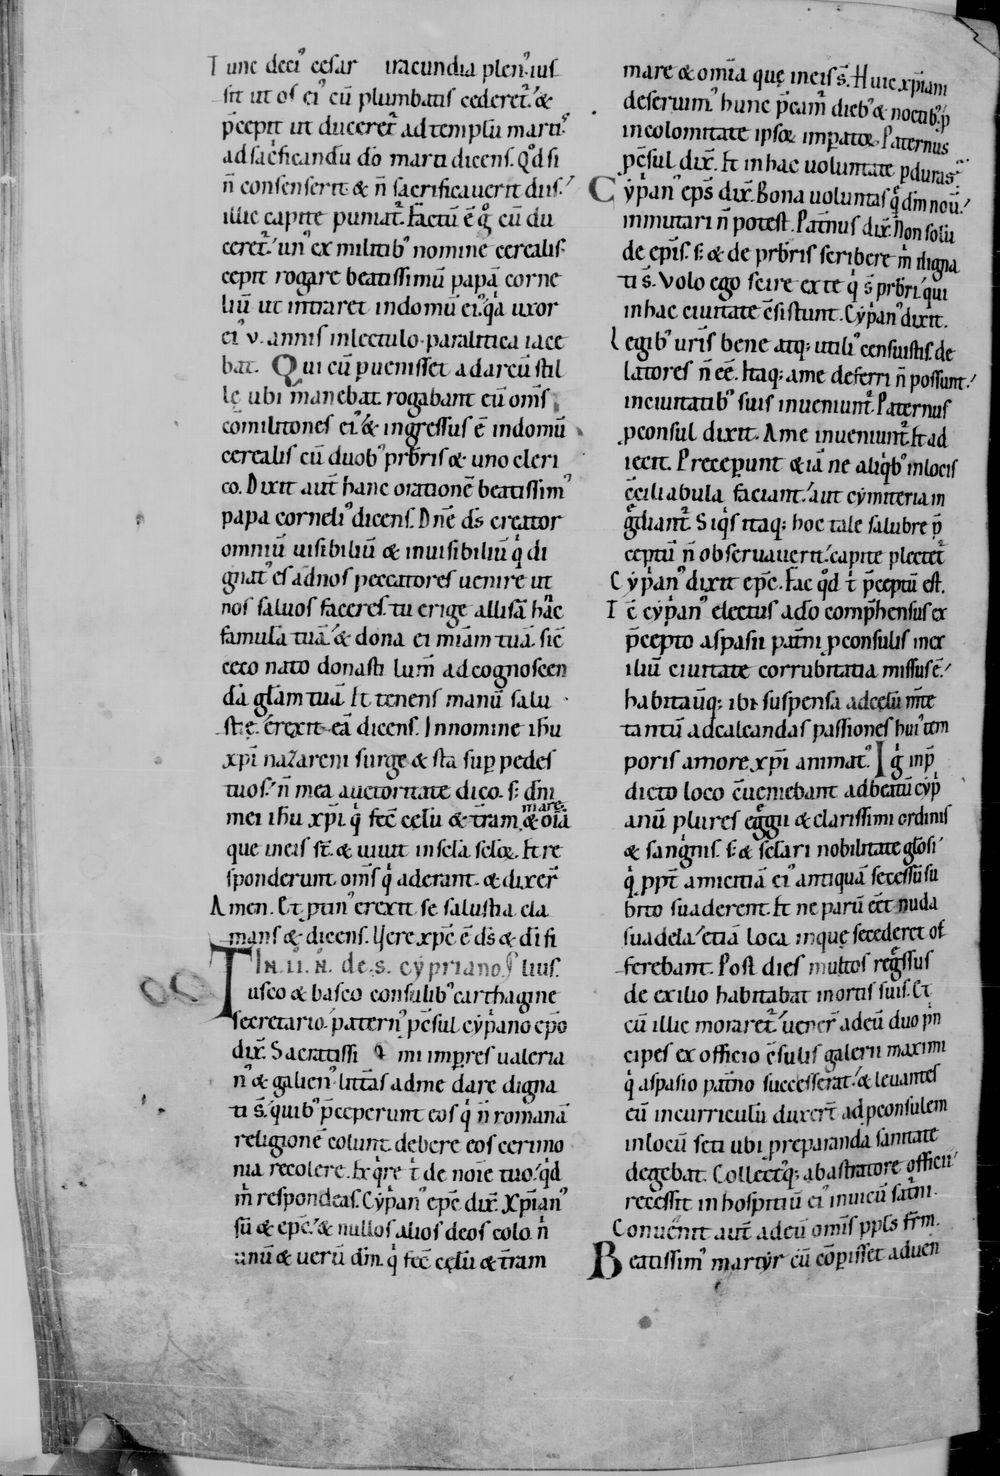 Tunc deci᾽ cesar iracundia plen᾽ ius
sit ut os ei᾽ cū plumbatis cederet᷑. &
p̄cepit ut duceret᷑ ad templū marti᾽
ad sac̍ficandū dō marti dicens. Qd̄ si
n̄ consenserit & n̄ sacrificauerit diis.
illic capite puniat᷑. Factū ē g̊ cū du
ceret᷑ un᾽ ex militib᾽ nomine cerealis.
cepit rogare beatissimū papā corne
liū ut intraret in domū ei᾽ q̍a uxor
ei᾽ v. annis in lectulo paralitica iace
bat. Qui cū puenisset ad arcū stil
lę ubi manebat rogabant eū om̄s
cōmilitones ei᾽ & ingressus ē in domū
cerealis cū duob᾽ prbr̄is & uno cleri
co. Dixit aut̄ hanc orationē beatissim᾽
papa corneli᾽ dicens. Dn̄e ds̄ creator
omniū uisibiliū & inuisibiliū q̍ di
gnat᾽ es ad nos peccatores uenire ut
nos saluos faceres. tu erige allisā hāc
famulā tuā. & dona ei mi͞am tuā. sic̄
ceco nato donasti lum̄ ad cognoscen
dā gl̄am tuā. Et tenens manū salu
stię. erexit eā dicens. In nomine ih̄u
xp̄i nazareni surge & sta sup pedes
tuos. n̄ mea auctoritate dico. s; dn̄i
mare
mei ih̄u xp̄i q̍ fec̄ cęlū & t̄ram & oi͞a
que in eis st̄. & uiuit in sc̄la sc̄loꝝ. Et re
sponderunt om̄s q̍ aderant. & dixer̄
Amen. Et ptin᾽ erexit se salustia cla
mans & dicens. Uere xpc̄ ē ds̄ & di fi
IN. II. N. de. s. cypriano. lius.
Tusco & basco consulib᾽ carthagine
secretario. patern᾽ pc̄sul cyp̍ano ep̄o
dix̄. Sacratissi mi imp̄res ualeria
n᾽ & galien᾽ litt̄as ad me dare digna
ti s̄. quib᾽ p̄ceperunt eos q̍ n̄ romanā
religionē colunt debere eos cerimo
nia recolere. Exq̍re t̍ de noi͞e tuo. qd̍
m̍ respondeas. Cyp̍an᾽ epc̄ dix̄. Xp̄ian᾽
sū & epc̄. & nullos alios deos colo. n̍
unū & uerū dm̄. q̍ fec̄ cęlū & t̄ram
mare & om̄ia quę in eis s̄. Huic xp̄iam
deseruim᾽ hunc p̄cam᷑ dieb᾽ & noctib᾽ p̄
incolomitate ipsoꝝ impatoꝝ. Paternus
pc̄sul dix̄. Et in hac uoluntate pduras.
Cyp̍an᾽ ep̄s dix̄. Bona uoluntas q̄ dm̄ nou̍.
inmutari n̄ potest. Pat̄nus dix̄. Non solū
de epi͞s. s; & de prbr̄is scribere m̍ digna
ti s̄. Volo ego scire ex te q̍ s̄ prbr̄i. qui
in hac ciuitate c̄sistunt. Cyp̍an᾽ dixit.
Legib᾽ ur̄is bene atq; utili᾽ censuistis. de
latores n̄ ēē. Itaq; a me deferri n̄ possunt.
in ciuitatib᾽ suis inueniunt᷑. Paternus
pconsul dixit. A me inueniunt᷑. Et ad
iecit. Preceperunt & iā ne aliq̍b᾽ in locis
c̄ciliabula faciant. aut cymiteria in
g̍diant᷑. Siq̍s itaq; hoc tale salubre p̄
ceptū n̄ obseruauerit. capite plectet᷑
Cyp̍an᾽ dixit epc̄. Fac qd̄ t̍ p̄ceptū est.
Ic̄ cyp̍an᾽ electus a dō comp̄hensus ex
p̄cepto aspasii pat̄ni pconsulis in ex
iliū ciuitate corrubitatia missus ē.
habitau̍q; ibi suspensa ad cęlū m̄te
tantū ad calcandas passiones hui᾽ tem
poris amore xp̄i animat᾽. Ig̍ in p̄
dicto loco c̄ueniebant ad beatū cyp̍
anū plures eg̊gii & clarissimi ordinis
& sang̍nis. s; & sc̄lari nobilitate gl̄osi
q̍ ppt̄ amicitiā ei᾽ antiquā secessū su
bito suaderent. Et ne parū eēt nuda
suadela. etiā loca in quę secederet of
ferebant. Post dies multos reg̊ssus
de exilio habitabat in ortis suis. Et
cū illic moraret᷑. uener̄ ad eū duo p̍n
cipes ex officio c̄sulis galerii maximi
q̍ aspasio pat̄no successerat. & leuantes
eū in curriculū duxer̄t ad pconsulem
in locū sc̄ti ubi preparanda sanitate
degebat. Collectq; ab astratore officii
recessit in hospitiū ei᾽ in uicū sat̄ni.
Conuenit aut̄ ad eū om̄is ppl̄s fr̄m.
Beatissim᾽ martyr cū cōpisset aduen